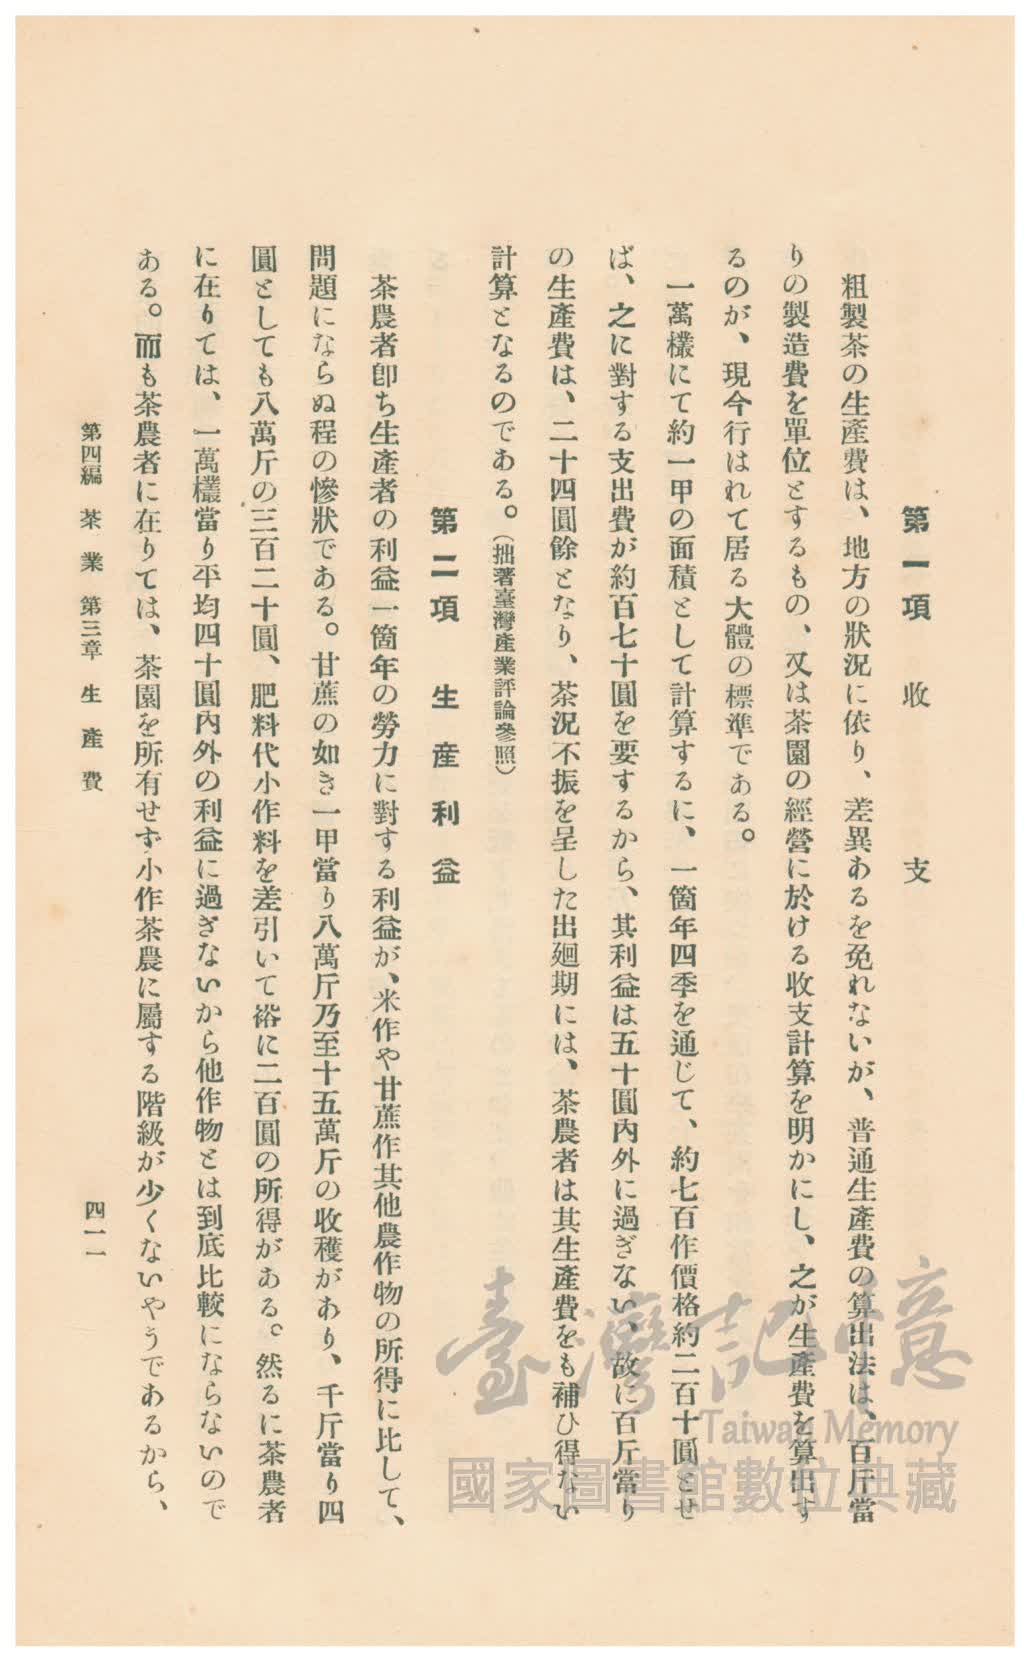 第一項　收　支
粗製茶の生產費は、地方の狀況に依り、差異あるを免れないが、普通生產費の算出法は、百斤當
りの製造費を單位とするもの、又は茶園の經營に於ける收支計算を明かにし、之が生產費を算出す
るのが、現今行はれて居る大體の標準である。
一萬欉にて約一甲の面積として計算するに、一箇年四季を通じて、約七百作價格約二百十圓とせ
ば、之に對する支出費が約百七十圓を要するから、其利益は五十圓內外に過ぎない、故に百斤當り
の生產費は、二十四圓餘となり、茶況不振を呈した出廻期には、茶農者は其生產費をも補ひ得ない
計算となるのである。（拙著臺灣產業評論參照）
第二項　生產利益
茶農者卽ち生產者の利益一箇年の勞力に對する利益が、米作や甘蔗作其他農作物の所得に比して、
問題にならぬ程の慘狀である。甘蔗の如き一甲當り八萬斤乃至十五萬斤の收穫があり、千斤當り四
圓としても八萬斤の三百二十圓、肥料代小作料を差引いて裕に二百圓の所得がある。然るに茶農者
に在りては、一萬欉當り平均四十圓內外の利益に過ぎないから他作物とは到底比較にならないので
ある。而も茶農者に在りては、茶園を所有せず小作茶農に屬する階級が少くないやうであるから、
第四編　茶業　第三章　生產費
四一一
臺灣記憶
Taiwan Memory
國家圖書館數位典藏